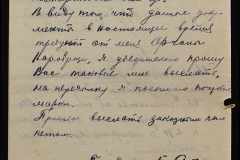 В виду того, что данные доку-
менты в настоящее время
требуют от меня органы
Наробраза, я убедительно прошу
Вас таковые мне выслать,
на пересылку я посылаю почтовые
марки.
Прошу выслать заказным па-
кетом.